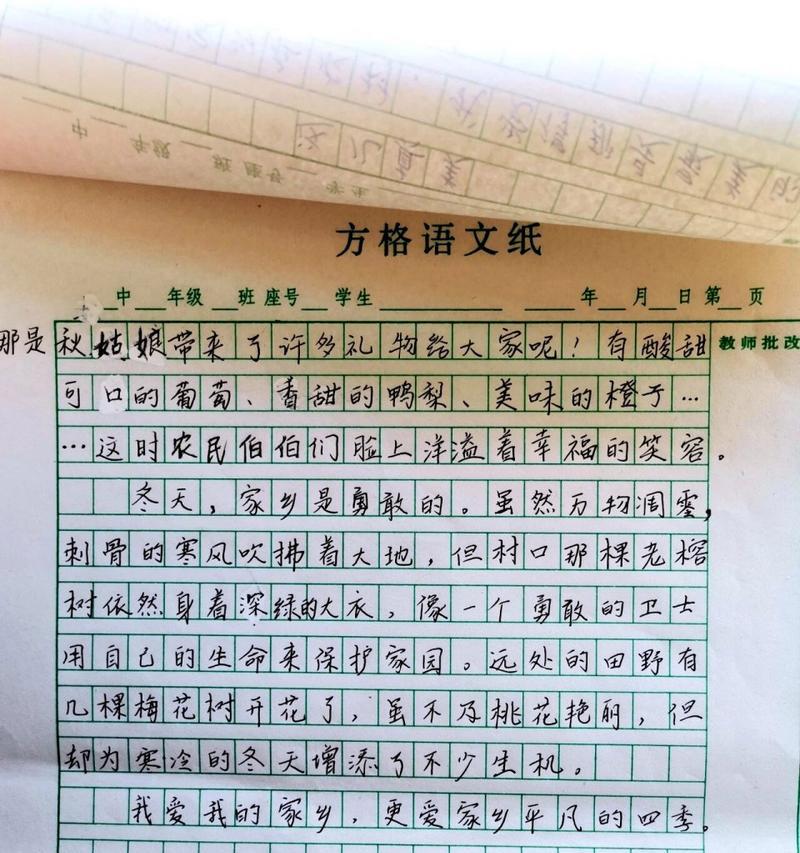 方格语文纸
中 年级 班 座号 学生 年 月 日 第 页
那是秋姑娘带来了许多礼物给大家呢！有酸甜 教师批改
可口的葡萄、香甜的鸭梨、美味的橙子…
…这时农民伯伯们脸上洋溢着幸福的笑容。
冬天，家乡是勇敢的。虽然万物凋零，
刺骨的寒风吹拂着大地，但村口那棵老榕
树依然身着深绿的大衣，像一个勇敢的卫士
用自己的生命来保护家园。远处的田野有
几棵梅花树开花了，虽不及桃花艳丽，但
却为寒冷的冬天增添了不少生机。
我爱我的家乡，更爱家乡平凡的四季。